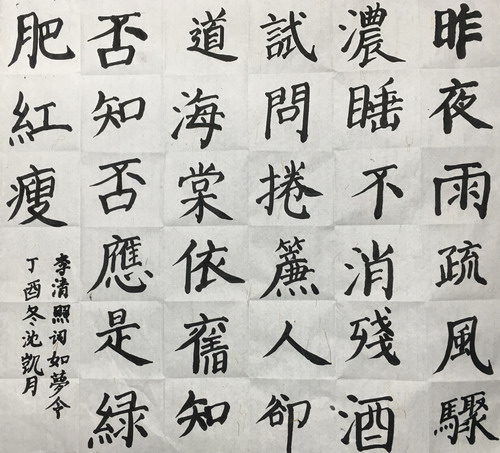 昨夜雨疏風驟
濃睡不消殘酒
試問捲簾人卻
道海棠依舊知
否知否應是綠
肥紅瘦
李清照词如夢令
丁酉冬沈凯月